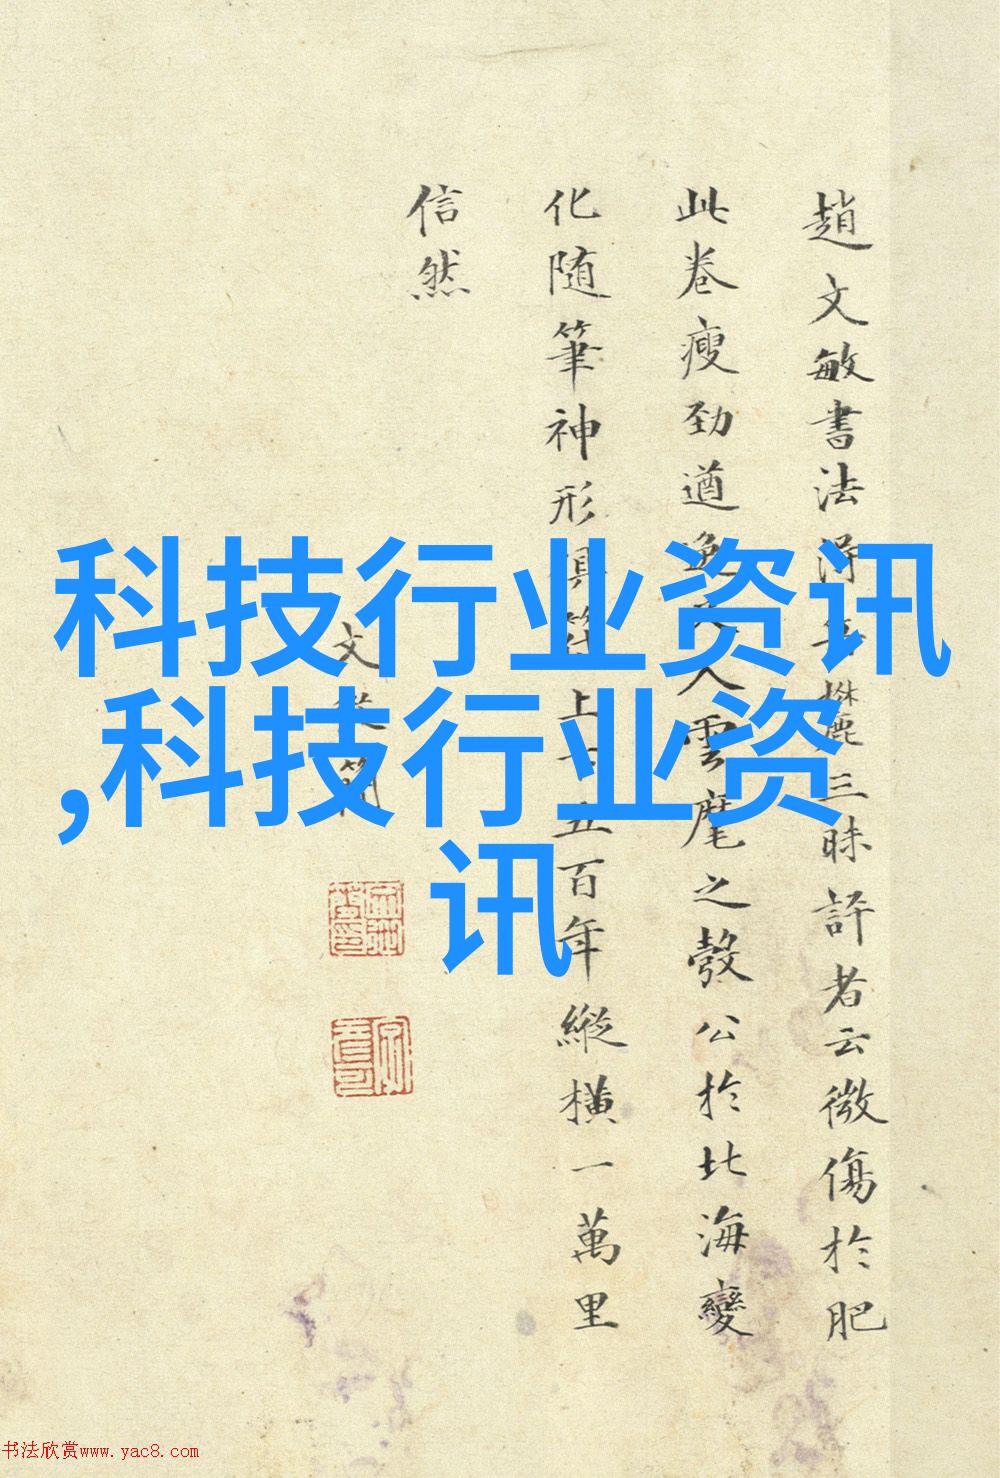 趙文敏書法三昧評者云微傷於肥
此卷瘦劲遒逸入雲麾之彀公於北海變
化随筆神形俱符上下五百年縱横一萬里
信然
文從簡
科技行业资讯
,科技行业资
讯
书法欣赏www.yac8.com